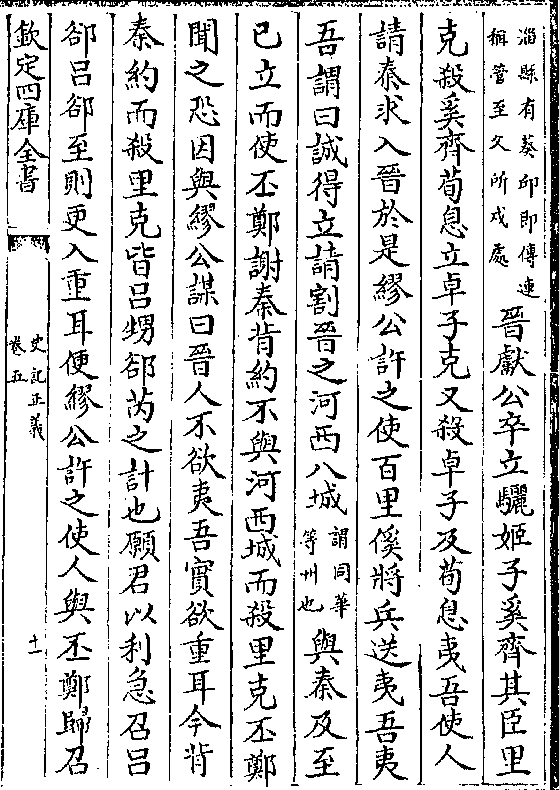 淄縣有葵邱即傳連
稱管至父所戍處
晉獻公卒立驪姬子奚齊其臣里
克殺奚齊荀息立卓子克又殺卓子及荀息夷吾使人
請秦求入晉於是繆公許之使百里傒將兵送夷吾夷
吾謂曰誠得立請割晉之河西八城
謂同華
等州也
與秦及至
已立而使丕鄭謝秦背約不與河西城而殺里克丕鄭
聞之恐因與繆公謀曰晉人不欲夷吾實欲重耳今背
秦約而殺里克皆呂甥郤芮之計也願君以利急召呂
郤呂郤至則更入重耳便繆公許之使人與丕鄭歸召
欽定四庫全書
史記正義
卷五
十一